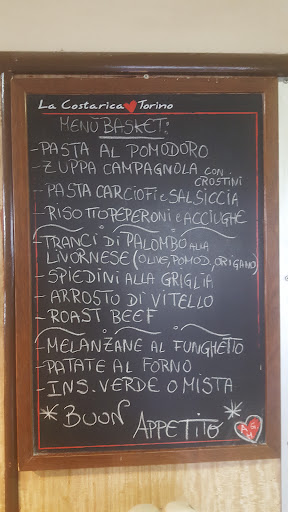 La Costarica Torino
MENÙ BASKET:
- PASTA AL POMODORO
- ZUPPA CAMPAGNOLA CON CROSTINI
- PASTA CARCIOFI E SALSICCIA
- RISOTTO PEPERONI E ACCIUGHE
- TRANCI DI PALOMBO ALLA
LIVORNESE (OLIVE, POMOD, ORIGANO)
- SPIEDINI ALLA GRIGLIA
- ARROSTO DI VITELLO
- ROAST BEEF
- MELANZANE AL FUNGHETTO
- PATATE AL FORNO
- INS. VERDE O MISTA
* BUON APPETITO *